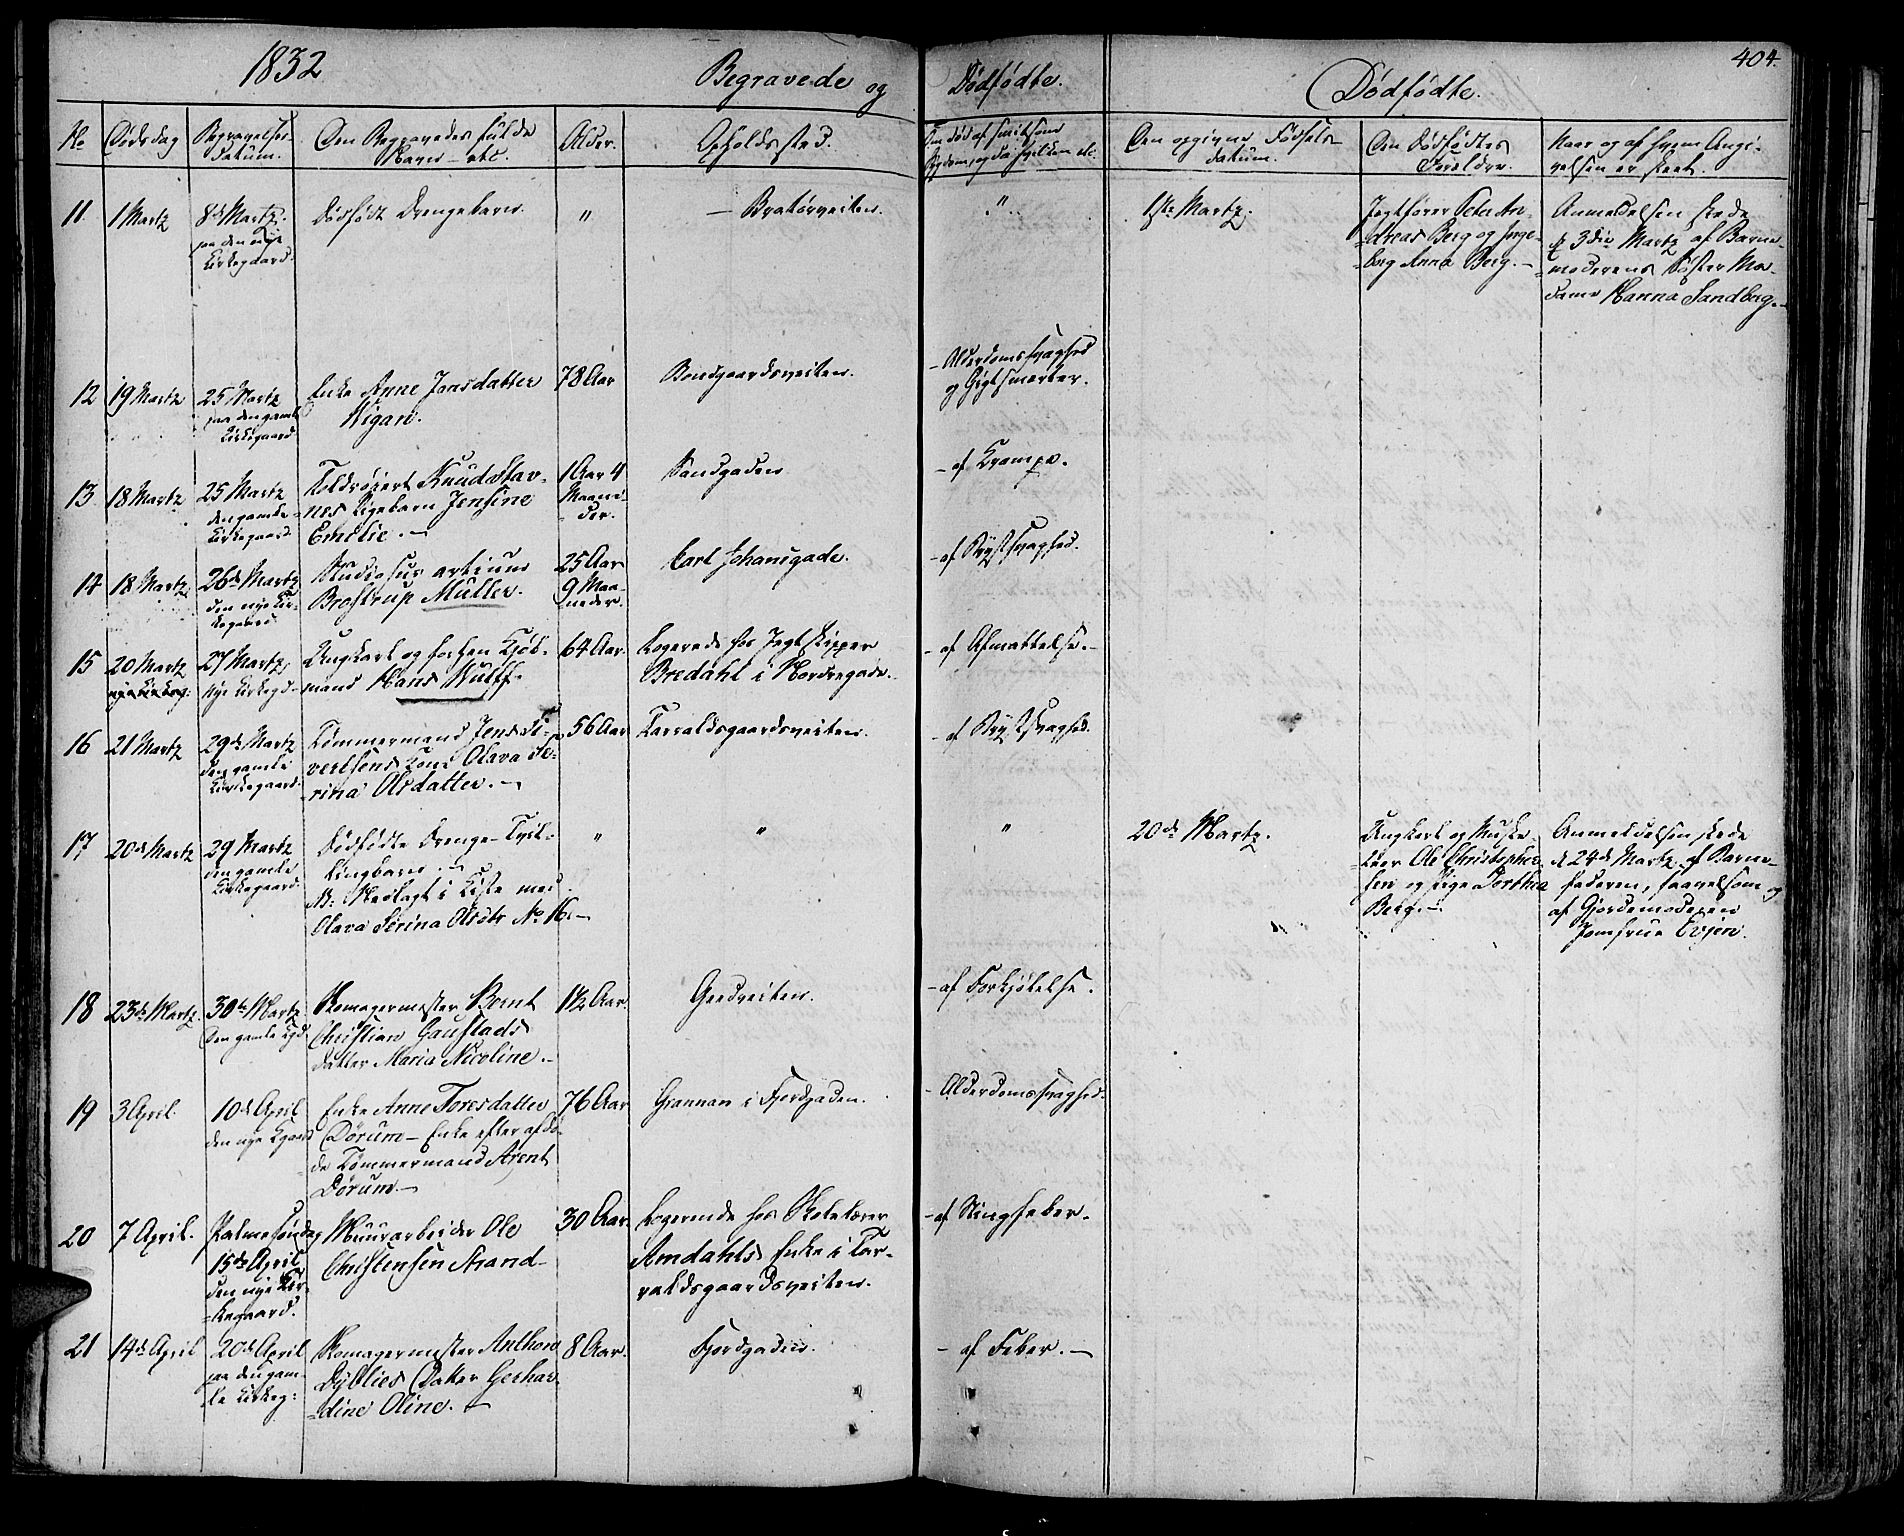 1832
Begravede og
Dødfødte.
Dødfødte.
404.
No
Dødsdag
Begravelses
Datum.
Den Begravedes fulde
Navn etc.
Alder.
Opholdssted.
Om død af smitsom
Sygdom, og da hvilken etc.
Den opgivne Fødsels
datum.
Den Dødfødtes
Forældre.
Naar og af hvem Angi-
velsen er skeet.
11.
1 Martz
8de Martz.
paa den nye
Kirkegaard.
Dødfødt Drengebarn.
"
— Bratørveiten.
"
1ste Martz.
Jegtfører Peter An-
dreas Berg og Inge-
borg Anna Berg. —
Anmeldelsen skede
d 3die Martz af Barne-
moderens Søster Ma-
dame Hanna Sandberg. —
12
19 Martz
25 Martz
paa den gamle
Kirkegaard.
Enke Anne Jonsdatter
Wigan.
78 Aar
Bondgaardsveiten.
— Alderdomssvaghed
og Gigtsmerter.
13
18 Martz
25 Martz
den gamle
Kirkegaard
Toldrorert Knud Stav-
nes Pigebarn Jensine
Emilie. —
1 Aar 4
Maane-
der.
Sandgaden
— af Krampe.
14
18 Martz
26de Martz
den nye Kir-
kegaard.
Studiosus artium
Brostrup Müller.
25 Aar
9 Maa-
neder.
Carl Johansgade.
— af Brystsvaghed.
15
20 Martz
27 Martz,
nye Kirkegd.
Ungkarl og forhen Kjøb-
mand Hans Wulff.
64 Aar.
Logerede hos Jegtskipper
Bredahl i Nordregade.
— af Afmattelse. —
16
21 Martz
29de Martz
den gamle
Kirkegaard.
Tømmermand Jens Si-
vertsens Kone Olava Se-
rina Olsdatter. —
56 Aar
Tarraldsgaardsveiten.
— af Brystsvaghed.
17
20de Martz
29 Martz
den gamle
Kirkegaard.
Dødfødte Drenge-Tvil-
lingbarn. —
NB: Nedlagt i Kiste med
Olava Serina Olsdtr No 16. —
"
"
"
20de Martz.
Ungkarl og Muske-
teer Ole Christopher-
sen og Pige Dorthea
Berg. —
Anmeldelsen skede
d 24de Martz af Barne-
faderen, saavelsom og
af Gjordemoderen
Jomfrue Evjen.
18
23de Martz.
30te Martz
Den gamle Kgd.
Skomagermester Bernt
Christian Gaustads
datter Maria Nicoline. —
1½ Aar.
Geedveiten.
— af Forkjølelse.
19
3 April.
10de April
den nye Kgaard
Enke Anne Toresdatter
Dørum — Enke efter afdø-
de Tømmermand Arent
Dørum. —
76 Aar
Grannan i Fjordgaden.
— Alderdomssvaghed.
20
7 April.
Palmesøndag
15de April
den nye Kir-
kegaard.
Muurarbeider Ole
Christensen Strand —
30 Aar.
Logerende hos Skolelærer
Amdahls Enke i Tar-
raldsgaardsveiten.
— af Stingfeber.
21
14de April
20de April
paa den gam-
le Kirkeg:
Skomagermester Anthon
Dyblies Datter Gerhar-
dine Oline. —
8 Aar.
Fjordgaden.
— af Feber. —